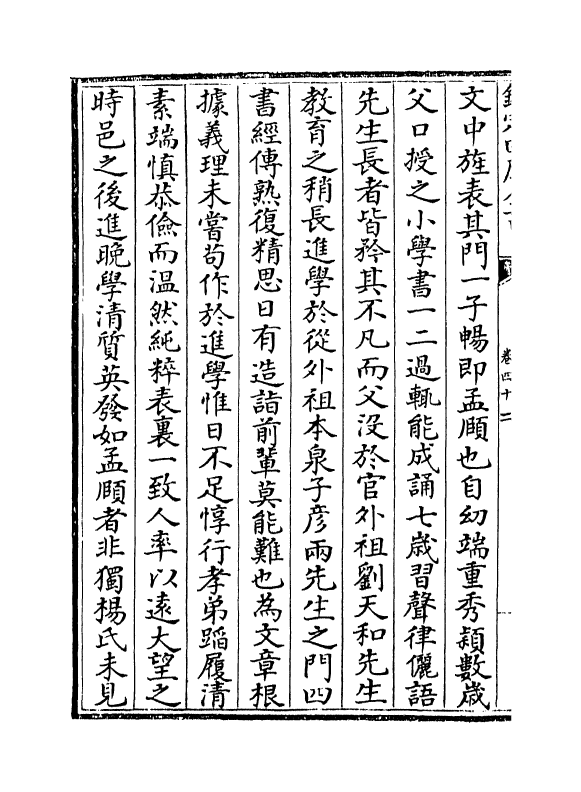 卷四十二
文中旌表其門一子暢即孟頥也自幼端重秀穎數歳
父口授之小學書一二過輒能成誦七歳習聲律儷語
先生長者皆矜其不凡而父没於官外祖劉天和先生
教育之稍長進學於從外祖本泉子彦兩先生之門四
書經傳熟復精思日有造詣前輩莫能難也為文章根
據義理未嘗苟作於進學惟日不足惇行孝弟蹈履清
素端慎恭儉而温然純粹表裏一致人率以遠大望之
時邑之後進晚學清質英發如孟頥者非獨楊氏未見